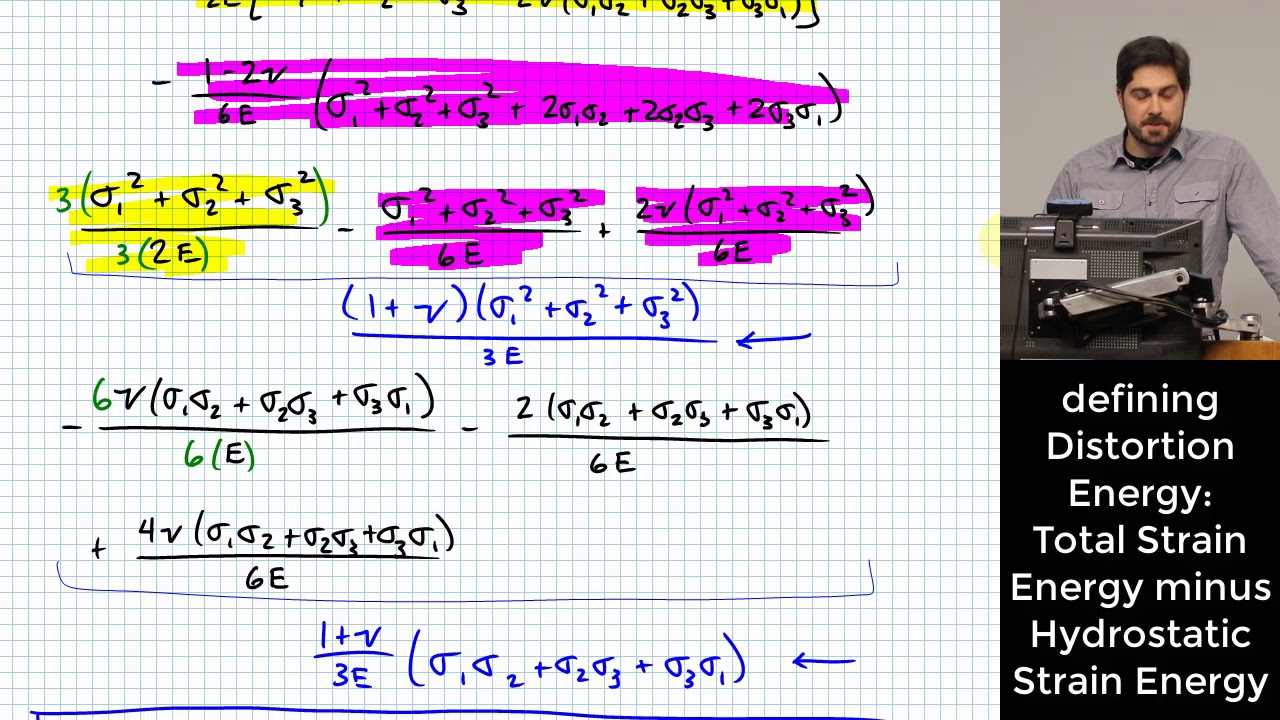 2E [ σ₁² + σ₂² + σ₃² - 2ν(σ₁σ₂ + σ₂σ₃ + σ₃σ₁)]
- (1-2ν)/6E (σ₁² + σ₂² + σ₃² + 2σ₁σ₂ + 2σ₂σ₃ + 2σ₃σ₁)
3(σ₁² + σ₂² + σ₃²)/3(2E) - (σ₁² + σ₂² + σ₃²)/6E + 2ν(σ₁² + σ₂² + σ₃²)/6E
(1+ν)(σ₁² + σ₂² + σ₃²)/3E ←
- 6ν(σ₁σ₂ + σ₂σ₃ + σ₃σ₁)/6(E) - 2(σ₁σ₂ + σ₂σ₃ + σ₃σ₁)/6E
+ 4ν(σ₁σ₂ + σ₂σ₃ + σ₃σ₁)/6E
(1+ν)/3E (σ₁σ₂ + σ₂σ₃ + σ₃σ₁) ←
defining
Distortion
Energy:
Total Strain
Energy minus
Hydrostatic
Strain Energy